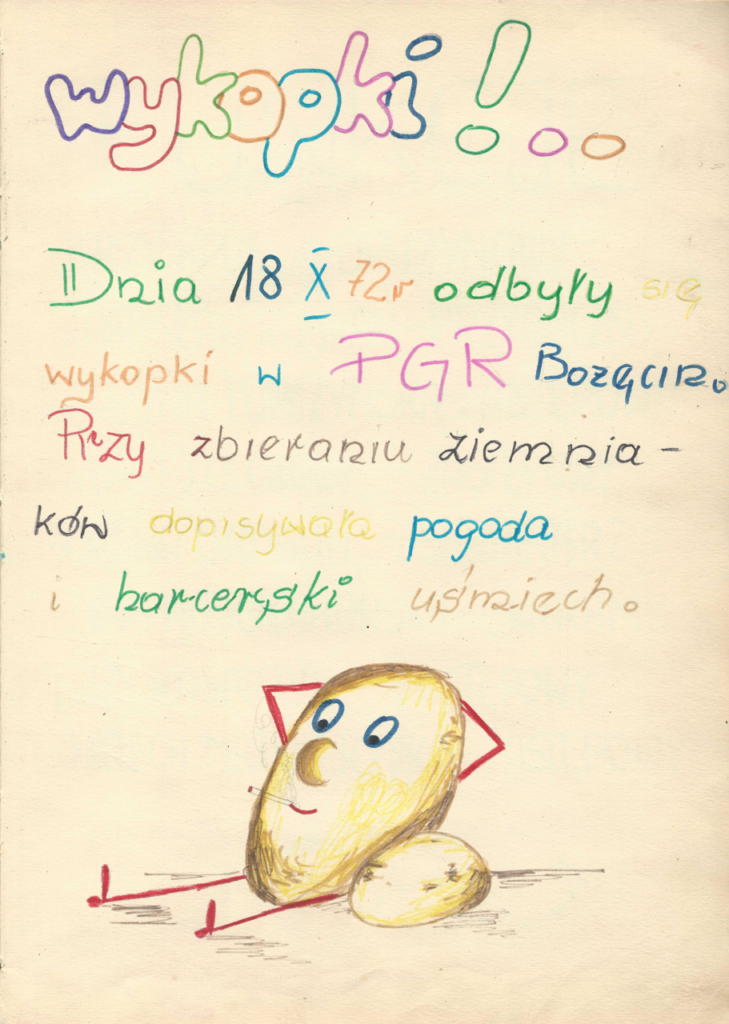 wykopki!...
Dnia 18 X 72r odbyły się
wykopki w PGR Bożęcin.
Przy zbieraniu ziemnia-
ków dopisywała pogoda
i harcerski uśmiech.